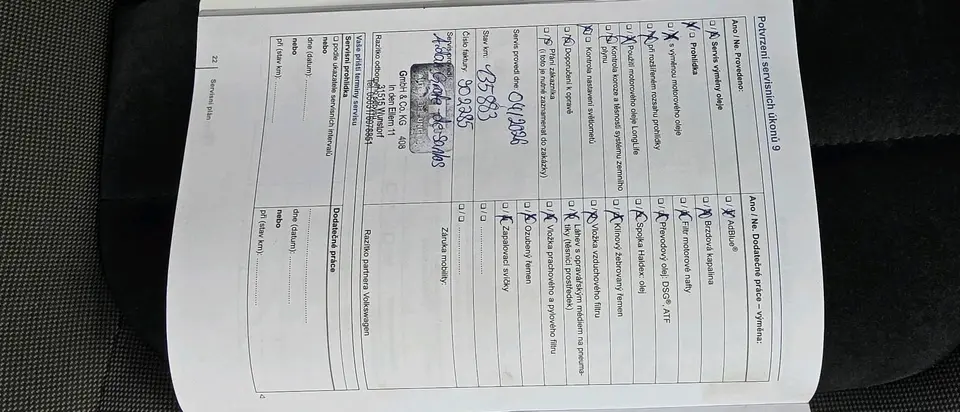 Potvrzení servisních úkonů 9
Ano / Ne. Provedeno:
☐ / ☒ Servis výměny oleje
☒ / ☐ Prohlídka
☐ / ☒ s výměnou motorového oleje
☐ / ☒ při rozšířeném rozsahu prohlídky
☐ / ☒ Použití motorového oleje LongLife
☐ / ☒ Kontrola koroze a těsnosti systému zemního plynu
☒ / ☐ Kontrola nastavení světlometů
☐ / ☒ Doporučení k opravě
☐ / ☒ Přání zákazníka
(i toto je nutné zaznamenat do zakázky)
Servis provedl dne: 04/2026
Stav km: 135 883
Číslo faktury: 902285
Servis provedl:
GmbH & Co. KG 408
In den Ellern 11
31515 Wunstorf
Razítko odborného servisu
Vaše příští termíny servisu
Servisní prohlídka
☐ podle ukazatele servisních intervalů
nebo
dne (datum): ..................
nebo
při (stav km): ..................
Ano / Ne. Dodatečné práce – výměna:
☐ / ☒ AdBlue®
☐ / ☒ Brzdová kapalina
☐ / ☒ Filtr motorové nafty
☐ / ☒ Převodový olej: DSG®, ATF
☐ / ☒ Spojka Haldex: olej
☐ / ☒ Klínový žebrovaný řemen
☐ / ☒ Vložka vzduchového filtru
☐ / ☒ Láhev s opravářským médiem na pneuma-
tiky (těsnicí prostředek)
☐ / ☒ Vložka prachového a pylového filtru
☐ / ☒ Ozubený řemen
☐ / ☒ Zapalovací svíčky
☐ / ☐ ..................
☐ / ☐ ..................
Záruka mobility:
Razítko partnera Volkswagen
Dodatečné práce
..................
dne (datum): ..................
nebo
při (stav km): ..................
22 | Servisní plán